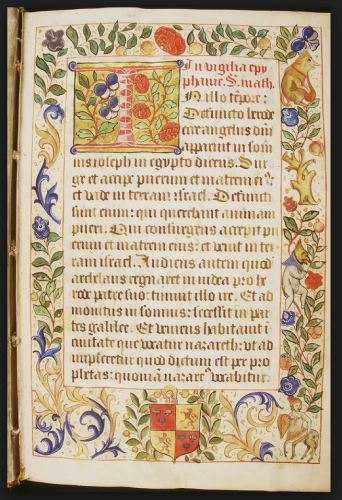 In vigilia epy
phanie. S. math.
In illo tẽpore:
Defuncto herode
ecce angelus dñi
apparuit in som
nis ioseph in egypto dicens. Sur
ge et accipe puerum et matrem ei⁹:
et vade in terram israel. Defuncti
sunt enim: qui querebant animam
pueri. Qui consurgens accepit pu
erum et matrem eius: et venit in ter
ram israel. Audiens autem quod
archelaus regnaret in iudea pro he
rode patre suo: timuit illo ire. Et ad
monitus in somnis: secessit in par
tes galilee. Et veniens habitauit ĩ
ciuitate que vocatur nazareth: vt ad
impleretur quod dictum est per pro
phetas: quoniã nazare⁹ vocabitur.